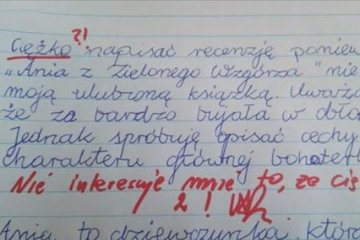 ?!
Ciężko napisać recenzję poniew
„Ania z Zielonego Wzgórza” nie
moją ulubioną książką. Uważa
że za bardzo bujała w obło
Jednak spróbuję opisać cechy
charakteru głównej bohate
Nie interesuje mnie to, że cię
2!
Ania to dziewczynka, któr